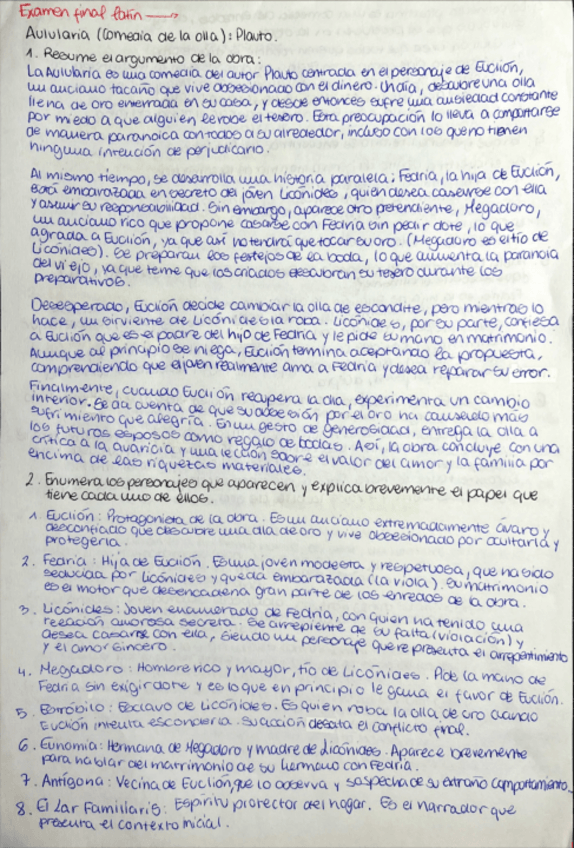 Examen final latín →
Aulularia (Comedia de la olla): Plauto.
1. Resume el argumento de la obra:
La Aulularia es una comedia del autor Plauto centrada en el personaje de Euclión,
un anciano tacaño que vive obsesionado con el dinero. Un día, descubre una olla
llena de oro enterrada en su casa, y desde entonces sufre una ansiedad constante
por miedo a que alguien le robe el tesoro. Esta preocupación lo lleva a comportarse
de manera paranoica con todos a su alrededor, incluso con los que no tienen
ninguna intención de perjudicarlo.
Al mismo tiempo, se desarrolla una historia paralela: Fedria, la hija de Euclión,
está embarazada en secreto del joven Licónides, quien desea casarse con ella
y asumir su responsabilidad. Sin embargo, aparece otro pretendiente, Megadoro,
un anciano rico que propone casarse con Fedria sin pedir dote, lo que
agrada a Euclión, ya que así no tendrá que tocar su oro. (Megadoro es el tío de
Licónides). Se preparan los festejos de la boda, lo que aumenta la paranoia
del viejo, ya que teme que los criados descubran su tesoro durante los
preparativos.
Desesperado, Euclión decide cambiar la olla de escondite, pero mientras lo
hace, un sirviente de Licónides la roba. Licónides, por su parte, confiesa
a Euclión que es el padre del hijo de Fedria y le pide su mano en matrimonio.
Aunque al principio se niega, Euclión termina aceptando la propuesta,
comprendiendo que el joven realmente ama a Fedria y desea reparar su error.
Finalmente, cuando Euclión recupera la olla, experimenta un cambio
interior. Se da cuenta de que su obsesión por el oro ha causado más
sufrimiento que alegría. En un gesto de generosidad, entrega la olla a
los futuros esposos como regalo de bodas. Así, la obra concluye con una
crítica a la avaricia y una lección sobre el valor del amor y la familia por
encima de las riquezas materiales.
2. Enumera los personajes que aparecen y explica brevemente el papel que
tiene cada uno de ellos.
1. Euclión: Protagonista de la obra. Es un anciano extremadamente ávaro y
desconfiado que descubre una olla de oro y vive obsesionado por ocultarla y
protegerla.
2. Fedria: Hija de Euclión. Es una joven modesta y respetuosa, que ha sido
seducida por Licónides y queda embarazada (la viola). Su matrimonio
es el motor que desencadena gran parte de los enredos de la obra.
3. Licónides: Joven enamorado de Fedria, con quien ha tenido una
relación amorosa secreta. Se arrepiente de su falta (violación) y
desea casarse con ella, siendo un personaje que representa el arrepentimiento
y el amor sincero.
4. Megadoro: Hombre rico y mayor, tío de Licónides. Pide la mano de
Fedria sin exigir dote y es lo que en principio le gana el favor de Euclión.
5. Estróbilo: Esclavo de Licónides. Es quien roba la olla de oro cuando
Euclión intenta esconderla. Su acción desata el conflicto final.
6. Eunomia: Hermana de Megadoro y madre de Licónides. Aparece brevemente
para hablar del matrimonio de su hermano con Fedria.
7. Antígona: Vecina de Euclión, que lo observa y sospecha de su extraño comportamiento.
8. El Lar Familiaris: Espíritu protector del hogar. Es el narrador que
presenta el contexto inicial.